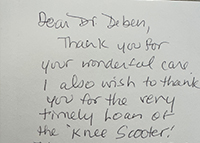 Dear Dr Deben,
Thank you for
your wonderful care.
I also wish to thank
you for the very
timely loan of
the "Knee Scooter!"